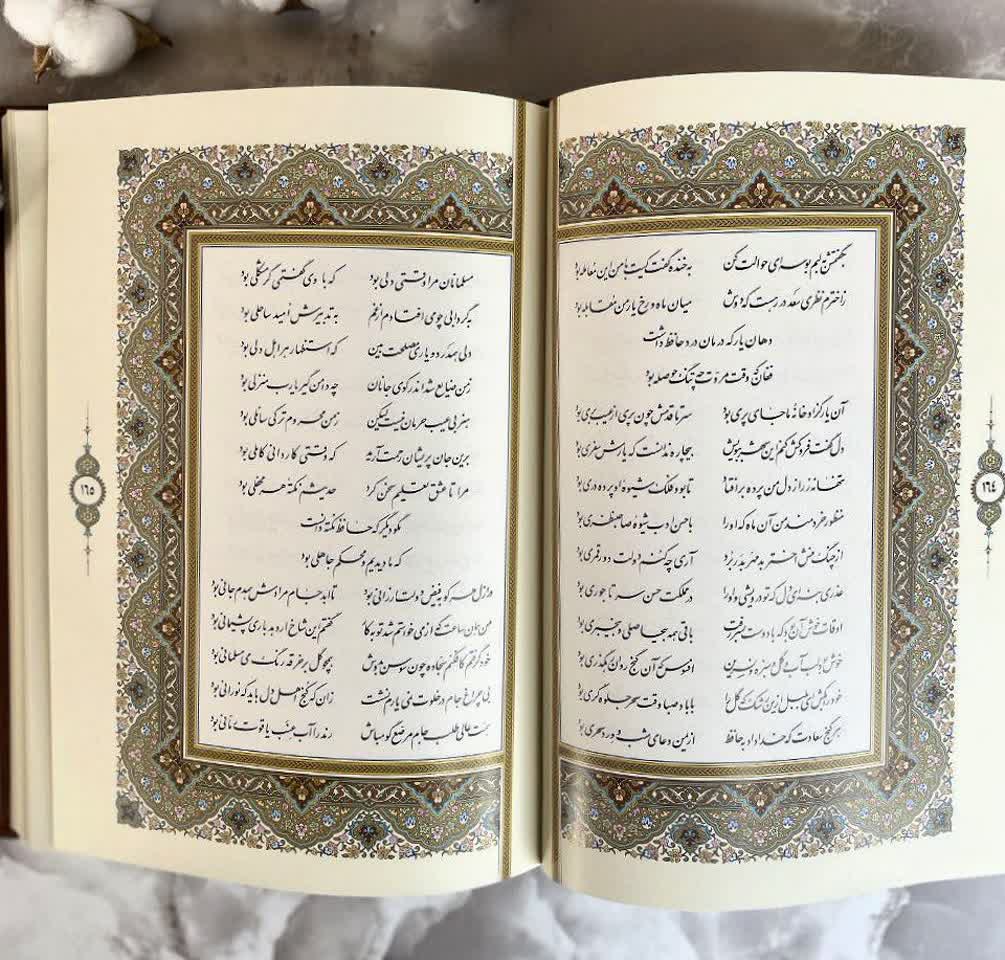 بگفتمش به لبم بوسه‌ای حوالت کن به خنده گفت کیت با من این معامله بود
ز اخترم نظری سعد در رهست که دوش میان ماه و رخ یار من مقابله بود
دهان یار که درمان درد حافظ داشت
فغان که وقت مروت چه تنگ حوصله بود
آن یار کزو خانهٔ ما جای پری بود سر تا قدمش چون پری از عیب بری بود
دل گفت فروکش کنم این شهر ببویش بیچاره ندانست که یارش سفری بود
تنها نه ز راز دل من پرده برافتاد تا بود فلک شیوهٔ او پرده دری بود
منظور خردمند من آن ماه که او را با حسن ادب شیوهٔ صاحنظری بود
از چنگ منش اختر بد مهر بدر برد آری چکنم دولت دور قمری بود
عذری بنه ای دل که تو درویشی و او را در مملکت حسن سر تاجوری بود
اوقات خوش آن بود که با دوست بسر رفت باقی همه بیحاصلی و بیخبری بود
خوش بود لب آب و گل و سبزه و نسرین افسوس که آن گنج روان رهگذری بود
خود را بکش ای بلبل ازین رشک که گل را با باد صبا وقت سحر جلوه گری بود
هر گنج سعادت که خدا داد به حافظ از یمن دعای شب و ورد سحری بود
١٦٤
مسلمانان مرا وقتی دلی بود که با وی گفتمی گر مشکلی بود
بگردابی چو می افتادم از غم به تدبیرش امید ساحلی بود
دلی همدرد و یاری مصلحت بین که استظهار هر اهل دلی بود
ز من ضایع شد اندر کوی جانان چه دامن گیر یارب منزلی بود
هنر بی عیب حرمان نیست لیکن ز من محروم‌تر کی سائلی بود
برین جان پریشان رحمت آرید که وقتی کاردانی کاملی بود
مرا تا عشق تعلیم سخن کرد حدیثم نکتهٔ هر محفلی بود
مگو دیگر که حافظ نکته دانست
که ما دیدیم و محکم جاهلی بود
در ازل هر کو به فیض دولت ارزانی بود تا ابد جام مرادش همدم جانی بود
من همان ساعت که از می خواستم شد توبه کار گفتم این شاخ ار دهد باری پشیمانی بود
خود گرفتم کافکنم سجاده چون سوسن بدوش همچو گل بر خرقه رنگ می مسلمانی بود
بی چراغ جام در خلوت نمی یارم نشست زان که کنج اهل دل باید که نورانی بود
همت عالی طلب جام مرصع گو مباش رند را آب عنب یاقوت رمانی بود
١٦٥